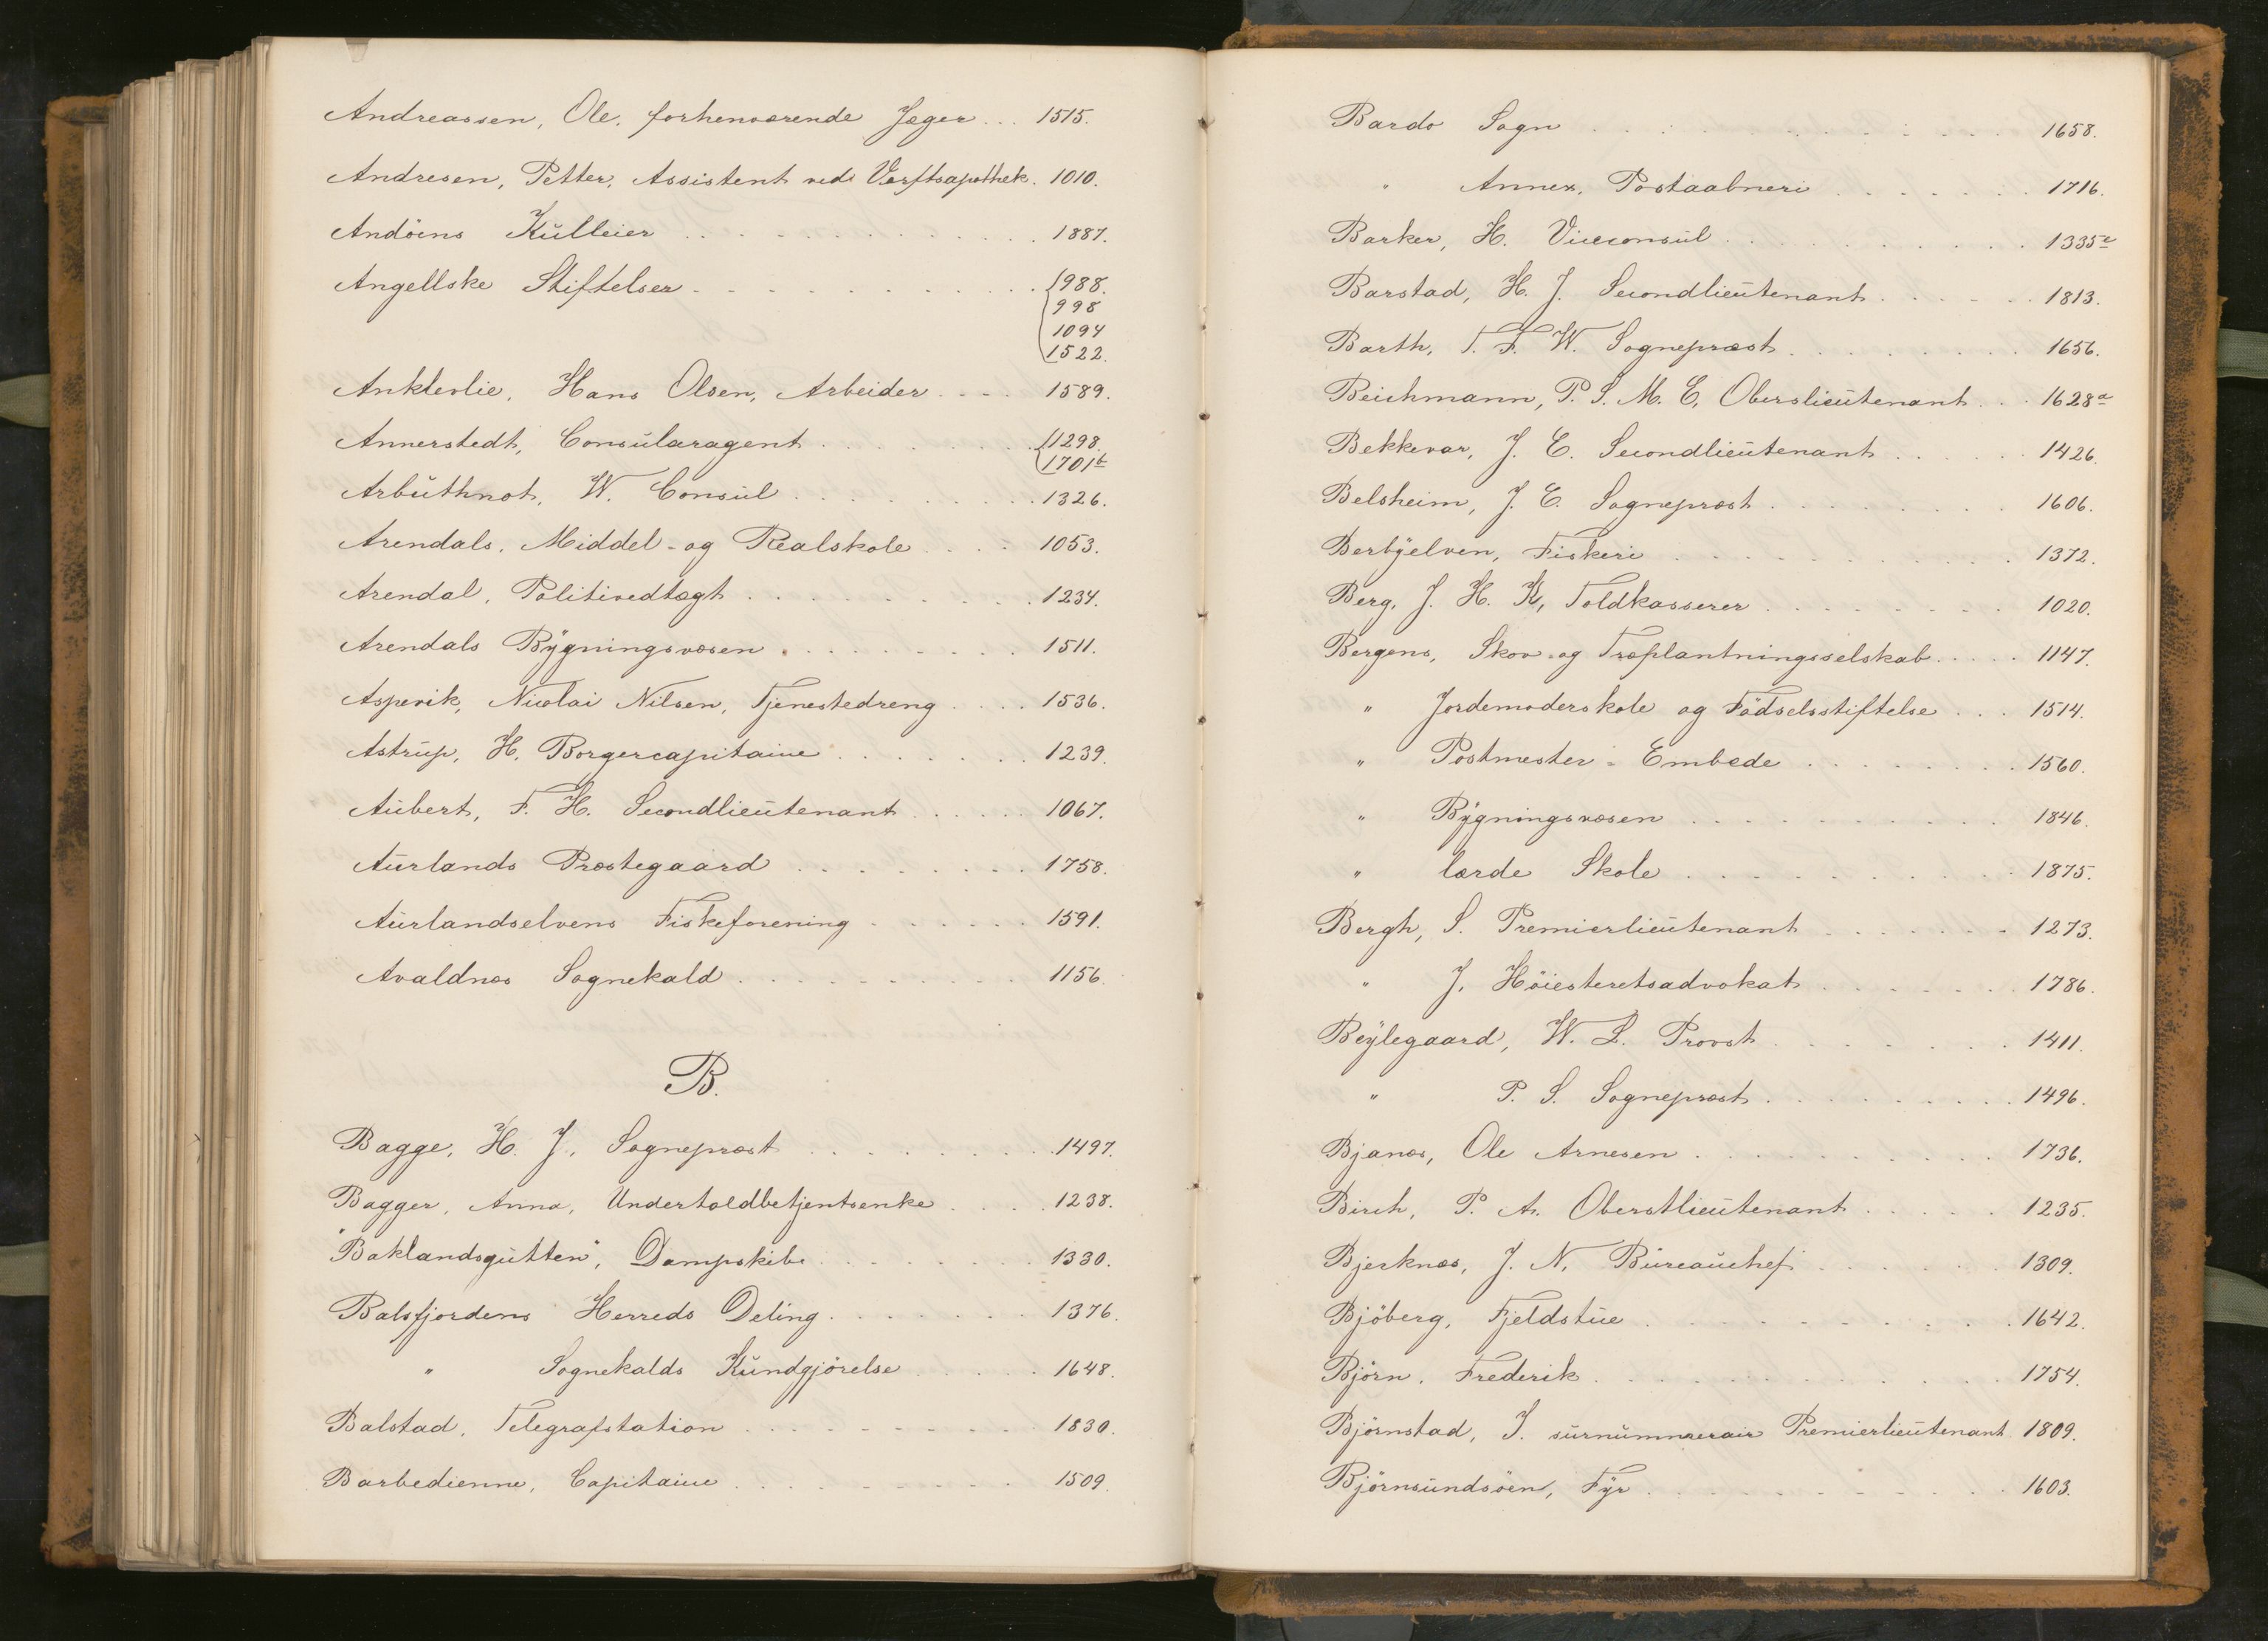 Andreassen, Ole, forhenværende Jæger ... 1515.
Andresen, Petter, Assistent ved Verftsapothek. 1010.
Andöens Kulleier . . . 1887.
Angellske Stiftelser . . . 988.
998
1094
1522.
Ankterlie, Hans Olsen, Arbeider . . . 1589.
Annerstedt, Consularagent . . . 1298.
1701b
Arbuthnot, W. Consul . . . 1326.
Arendals, Middel- og Realskole . . . 1053.
Arendal, Politivedtægt . . . 1234.
Arendals Bygningsvæsen . . . 1511.
Aspevik, Nicolai Nilsen, Tjenestedreng . . . 1536.
Astrup, H. Borgercapitaine . . . 1239.
Aubert, F. H. Secondlieutenant . . . 1067.
Aurlands Præstegaard . . . 1758.
Aurlandselvens Fiskeforening . . . 1591.
Avaldnæs Sognekald . . . 1156.
B.
Bagge, H. J., Sognepræst . . . 1497.
Bagger, Anna, Undertoldbetjentsenke . . . 1238.
"Baklandsgutten", Dampskib . . . 1330.
Balsfjordens Herreds Deling . . . 1376.
" Sognekalds Kundgjörelse . . . 1648.
Balstad, Telegrafstation . . . 1830.
Barbedienne, Capitaine . . . 1509.
Bardo Sogn . . . 1658.
" Annex, Postaabneri . . . 1716.
Barker, H. Viceconsul . . . 1335c
Barstad, H. J. Secondlieutenant . . . 1813.
Barth, T. F. W. Sognepræst . . . 1656.
Beichmann, P. S. M. E, Oberslieutenant . . . 1628a
Bekkevar, J. E. Secondlieutenant . . . 1426.
Belsheim, J. E. Sognepræst . . . 1606.
Berbyelven, Fiskeri . . . 1372.
Berg, J. H. K, Toldkasserer . . . 1020.
Bergens, Skov- og Træplantningsselskab . . . 1147.
" Jordemoderskole og Födselsstiftelse . . . 1514.
" Postmester-Embede . . . 1560.
" Bygningsvæsen . . . 1846.
" lærde Skole . . . 1875.
Bergh, S. Premierlieutenant . . . 1273.
" J. Höiesteretsadvokat . . . 1786.
Beylegaard, W. L. Provst . . . 1411.
" P. S. Sognepræst . . . 1496.
Bjanæs, Ole Arnesen . . . 1736.
Birch, P. A. Oberstlieutenant . . . 1235.
Bjerknæs, J. N. Bureauchef . . . 1309.
Bjöberg, Fjeldstue . . . 1642.
Björn, Frederik . . . 1754.
Björnstad, J. surnummerair Premierlieutenant 1809.
Björnsundsöen, Fyr . . . 1603.